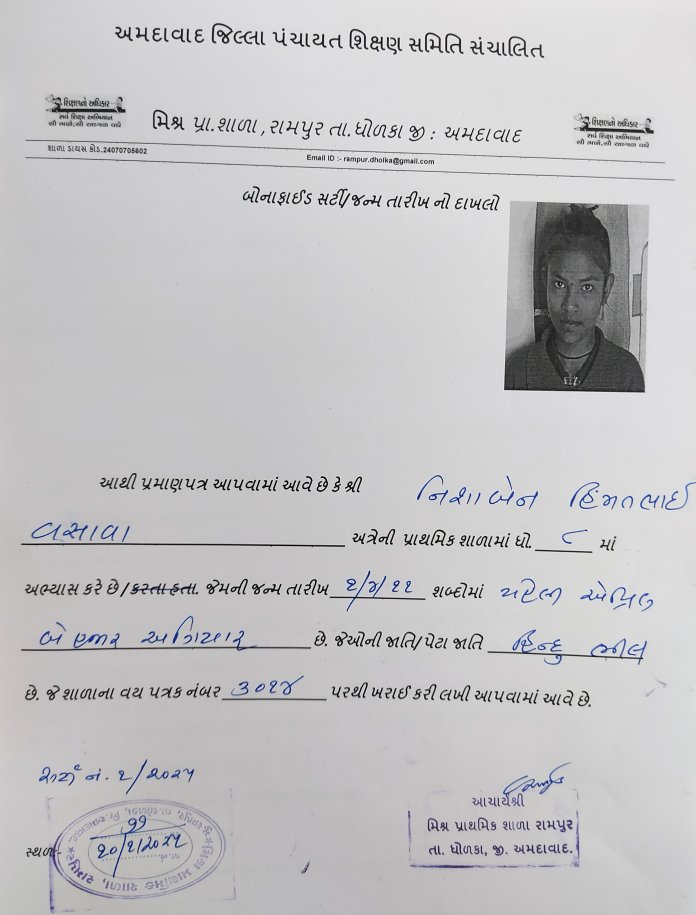 અમદાવાદ જિલ્લા પંચાયત શિક્ષણ સમિતિ સંચાલિત
શિક્ષણનો અધિકાર
સર્વ શિક્ષા અભિયાન
સૌ ભણે,સૌ આગળ વધે
મિશ્ર પ્રા.શાળા ,રામપુર તા.ધોળકા જી : અમદાવાદ
શિક્ષણનો અધિકાર
સર્વ શિક્ષા અભિયાન
સૌ ભણે,સૌ આગળ વધે
શાળા ડાયસ કોડ.24070705602
Email ID :- rampur.dholka@gmail.com
બોનાફાઈડ સર્ટી/જન્મ તારીખ નો દાખલો
આથી પ્રમાણપત્ર આપવામાં આવે છે કે શ્રી નિશાબેન હિંમતભાઈ
વસાવા અત્રેની પ્રાથમિક શાળામાં ધો. ૮ માં
અભ્યાસ કરે છે/કરતા હતા. જેમની જન્મ તારીખ ૧/૪/૧૧ શબ્દોમાં પહેલી એપ્રિલ
બે હજાર અગિયાર છે. જેઓની જાતિ/પેટા જાતિ હિન્દુ ભીલ
છે. જે શાળાના વય પત્રક નંબર ૩૦૧૪ પરથી ખરાઈ કરી લખી આપવામાં આવે છે.
સર્ટી નં. ૧/૨૦૨૫
સ્થળ:-
આચાર્યશ્રી
મિશ્ર પ્રાથમિક શાળા રામપુર
તા. ધોળકા, જી. અમદાવાદ.